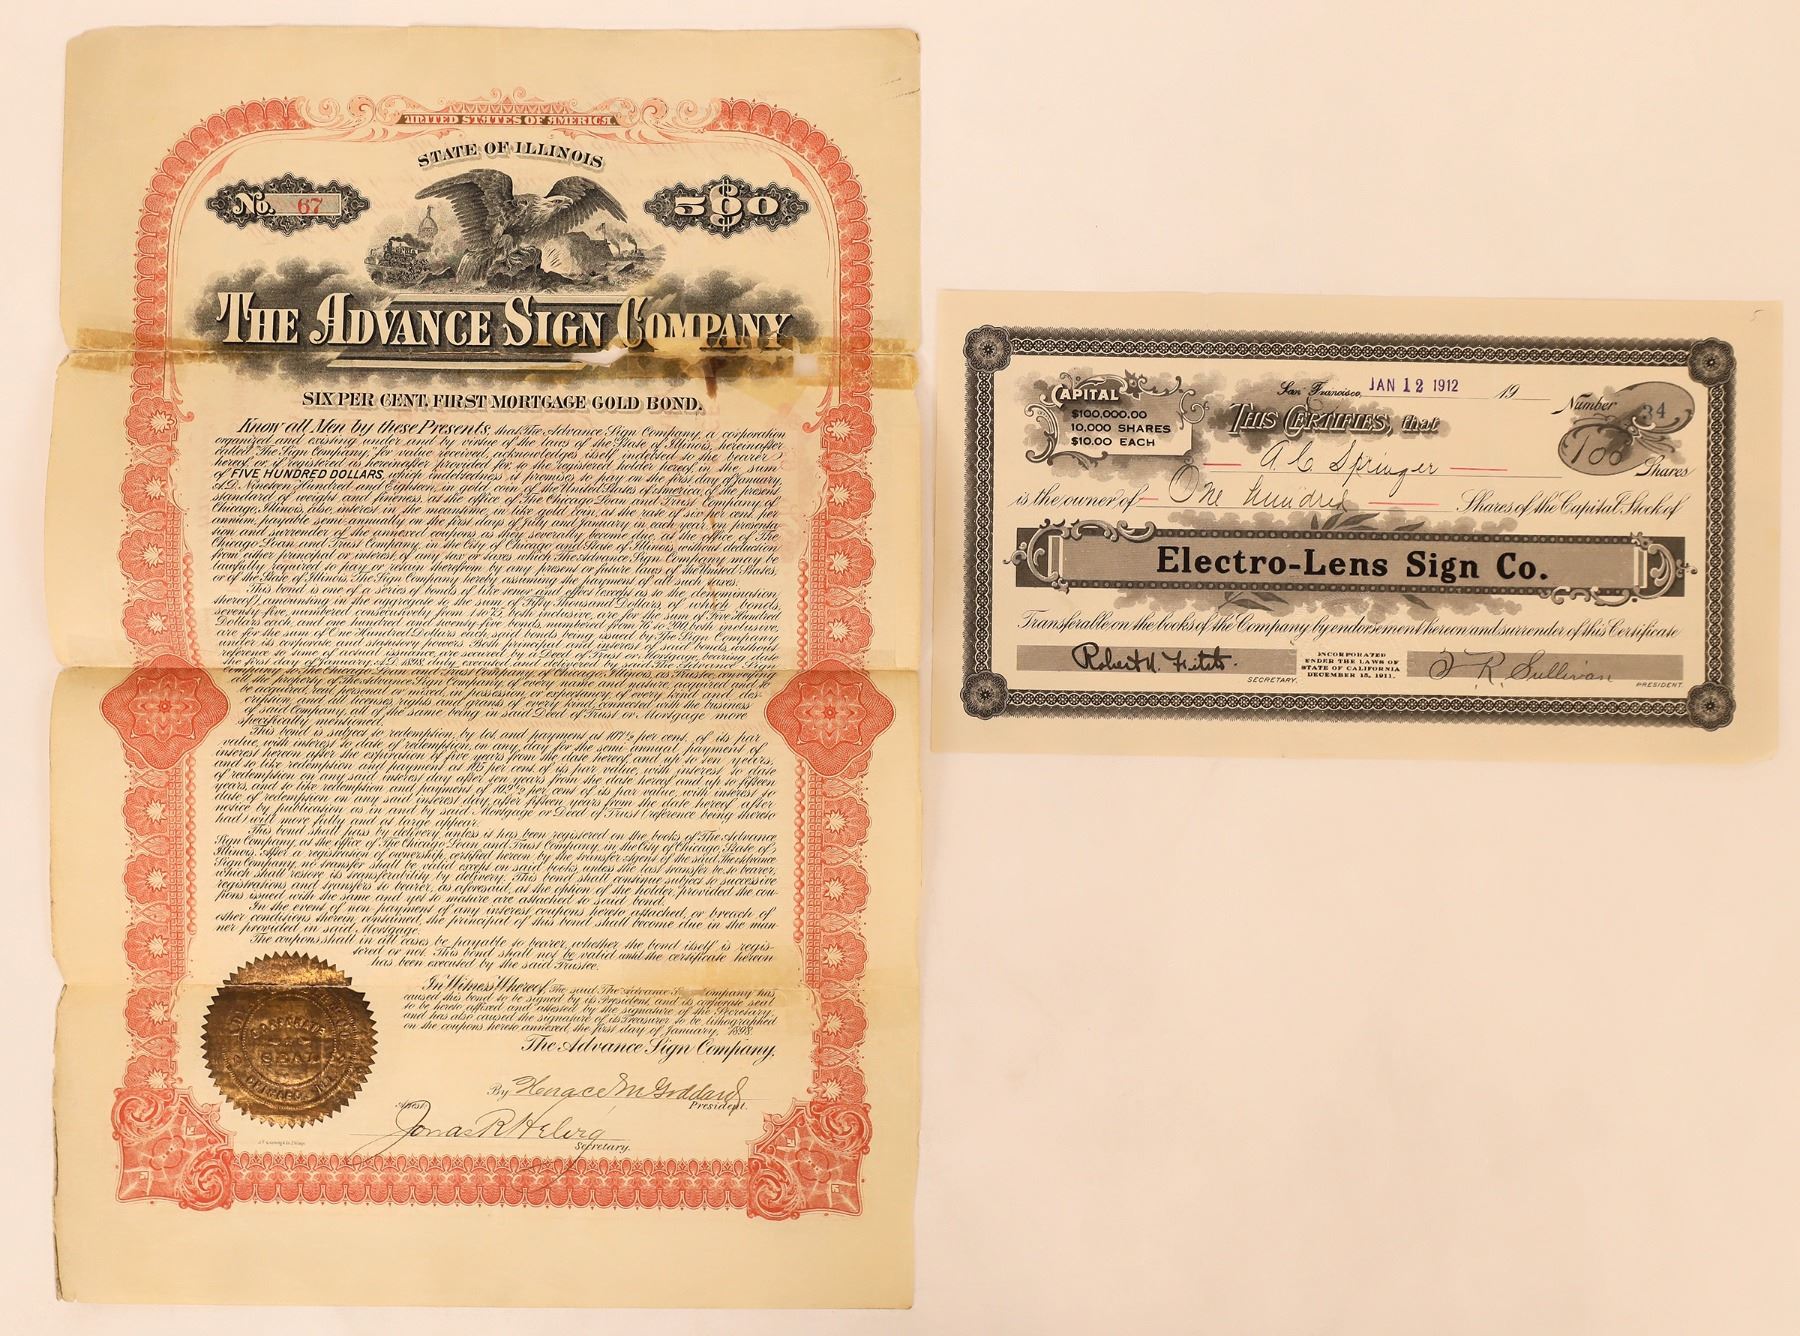 UNITED STATES OF AMERICA.
STATE OF ILLINOIS
No. 67
$500
THE ADVANCE SIGN COMPANY
SIX PER CENT. FIRST MORTGAGE GOLD BOND.
Know all Men by these Presents, that The Advance Sign Company, a corporation
organized and existing under and by virtue of the laws of the State of Illinois, hereinafter
called The Sign Company, for value received, acknowledges itself indebted to the bearer
hereof, or, if registered as hereinafter provided for, to the registered holder hereof, in the sum
of FIVE HUNDRED DOLLARS, which indebtedness it promises to pay on the first day of January,
A.D. Nineteen Hundred and Eighteen, in gold coin of the United States of America, of the present
standard of weight and fineness, at the office of The Chicago Loan and Trust Company, of
Chicago, Illinois, also, interest in the meantime, in like gold coin, at the rate of six per cent. per
annum, payable semi-annually on the first days of July and January in each year, on presenta-
tion and surrender of the annexed coupons as they severally become due, at the office of The
Chicago Loan and Trust Company, in the City of Chicago and State of Illinois, without deduction
from either principal or interest of any tax or taxes which The Advance Sign Company may be
lawfully required to pay or retain therefrom by any present or future laws of the United States,
or of the State of Illinois, The Sign Company hereby assuming the payment of all such taxes.
This bond is one of a series of bonds of like tenor and effect (except as to the denomination
thereof), amounting in the aggregate to the sum of Fifty Thousand Dollars, of which bonds,
seventy-five, numbered consecutively from 1 to 75, both inclusive, are for the sum of Five Hundred
Dollars each, and one hundred and twenty-five bonds, numbered from 76 to 200, both inclusive,
are for the sum of One Hundred Dollars each, said bonds being issued by The Sign Company
under its corporate and statutory powers. Both principal and interest of said bonds, without
reference to time of actual issuance, are secured by a Deed of Trust or Mortgage, bearing date
the first day of January, A.D. 1898, duly executed and delivered by said The Advance Sign
Company to The Chicago Loan and Trust Company, of Chicago, Illinois, as Trustee, conveying
all the property of The Advance Sign Company of every name and nature, acquired and to
be acquired, real personal or mixed, in possession, or expectancy, of every kind and des-
cription, and all licenses, rights and grants of every kind, connected with the business
of said Company, all of the same being in said Deed of Trust or Mortgage more
specifically mentioned.
This bond is subject to redemption, by lot, and payment at 107½ per cent. of its par
value, with interest to date of redemption, on any day for the semi-annual payment of
interest hereon, after the expiration of five years from the date hereof, and up to ten years,
and to like redemption and payment at 105 per cent. of its par value, with interest to date
of redemption on any said interest day after ten years from the date hereof and up to fifteen
years, and to like redemption and payment of 102½ per cent. of its par value, with interest to
date of redemption on any said interest day, after fifteen years from the date hereof after
notice by publication as in and by said Mortgage or Deed of Trust (reference being thereto
had) will more fully and at large appear.
This bond shall pass by delivery, unless it has been registered on the books of The Advance
Sign Company, at the office of The Chicago Loan and Trust Company, in the City of Chicago, State of
Illinois. After a registration of ownership, certified hereon by the transfer Agent of the said The Advance
Sign Company, no transfer shall be valid except on said books, unless the last transfer be to bearer,
which shall restore its transferability by delivery. This bond shall continue subject to successive
registrations and transfers to bearer, as aforesaid, at the option of the holder, provided the cou-
pons issued with the same and yet to mature are attached to said bond.
In the event of non-payment of any interest coupons hereto attached, or breach of
other conditions therein contained, the principal of this bond shall become due in the man-
ner provided in said Mortgage.
The coupons shall in all cases be payable to bearer, whether the bond itself is regis-
tered or not. This bond shall not be valid until the certificate hereon
has been executed by the said Trustee.
In Witness Whereof, The said The Advance Company has
caused this bond to be signed by its President, and its corporate seal
to be hereto affixed and attested by the signature of the Secretary,
and has also caused the signature of its Treasurer to be lithographed
on the coupons hereto annexed, the first day of January, 1898.
The Advance Sign Company,
By Horace M Goddard
President.
Attest
Jonas R Helvig
Secretary.
CORPORATE
SEAL
CAPITAL
$100,000.00
10,000 SHARES
$10.00 EACH
San Francisco, JAN 12 1912 19
Number 34
THIS CERTIFIES, that
100 Shares
A C Springer
is the owner of One Hundred Shares of the Capital Stock of
Electro-Lens Sign Co.
Transferable on the books of the Company by endorsement hereon and surrender of this Certificate
SECRETARY.
INCORPORATED
UNDER THE LAWS OF
STATE OF CALIFORNIA
DECEMBER 15, 1911.
F R Sullivan
PRESIDENT